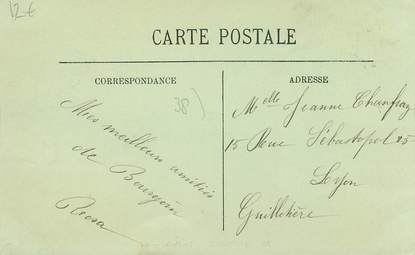 12 €
CARTE POSTALE
CORRESPONDANCE
ADRESSE
38)
Mes meilleurs amitiés
de Bourgoin
Rosa
Melle Jeanne
15 Rue Sébastopol 25
Lyon
Guillotière